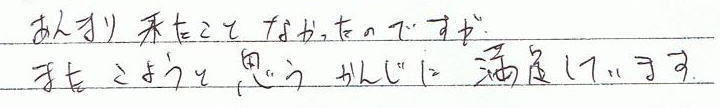 あんまり来たことなかったのですが
またこようと思うかんじに満足しています